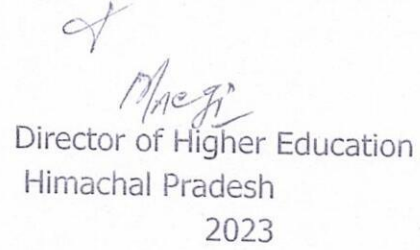 Director of Higher Education
Himachal Pradesh
2023